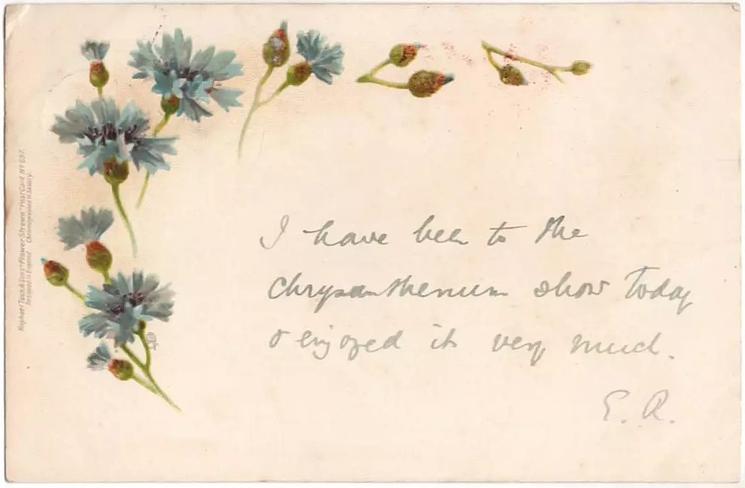 I have been to the
chrysanthemum show today
& enjoyed it very much.
E. R.
Raphael Tuck & Sons' "Flower Strewn" Post Card Nº 597.
Designed in England Chromographed in Saxony.